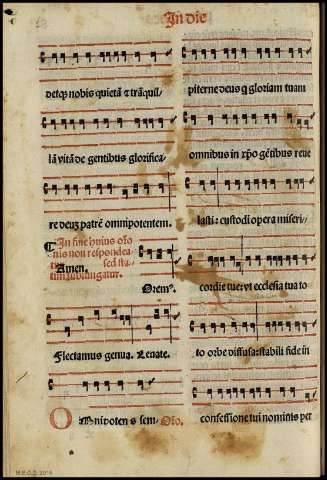 In die
detq3 nobis quietā ⁊ trāquil/
lā vitā de gentibus glorifica/
re deū3 patrē omnipotentem.
Amen.
In fine huius orō
nis non respondea
sed sta
tim subiungatur.
Oremꝰ.
Flectamus genua. Leuate.
Omnipotens sem- Orō.
piterne deus q̄ gloriam tuam
omnibus in xpō gētibus reue
lasti: custodi opera miseri/
cordie tue: vt ecclesia tua to
to orbe diffusa: stabili fide in
confessione tui nominis per